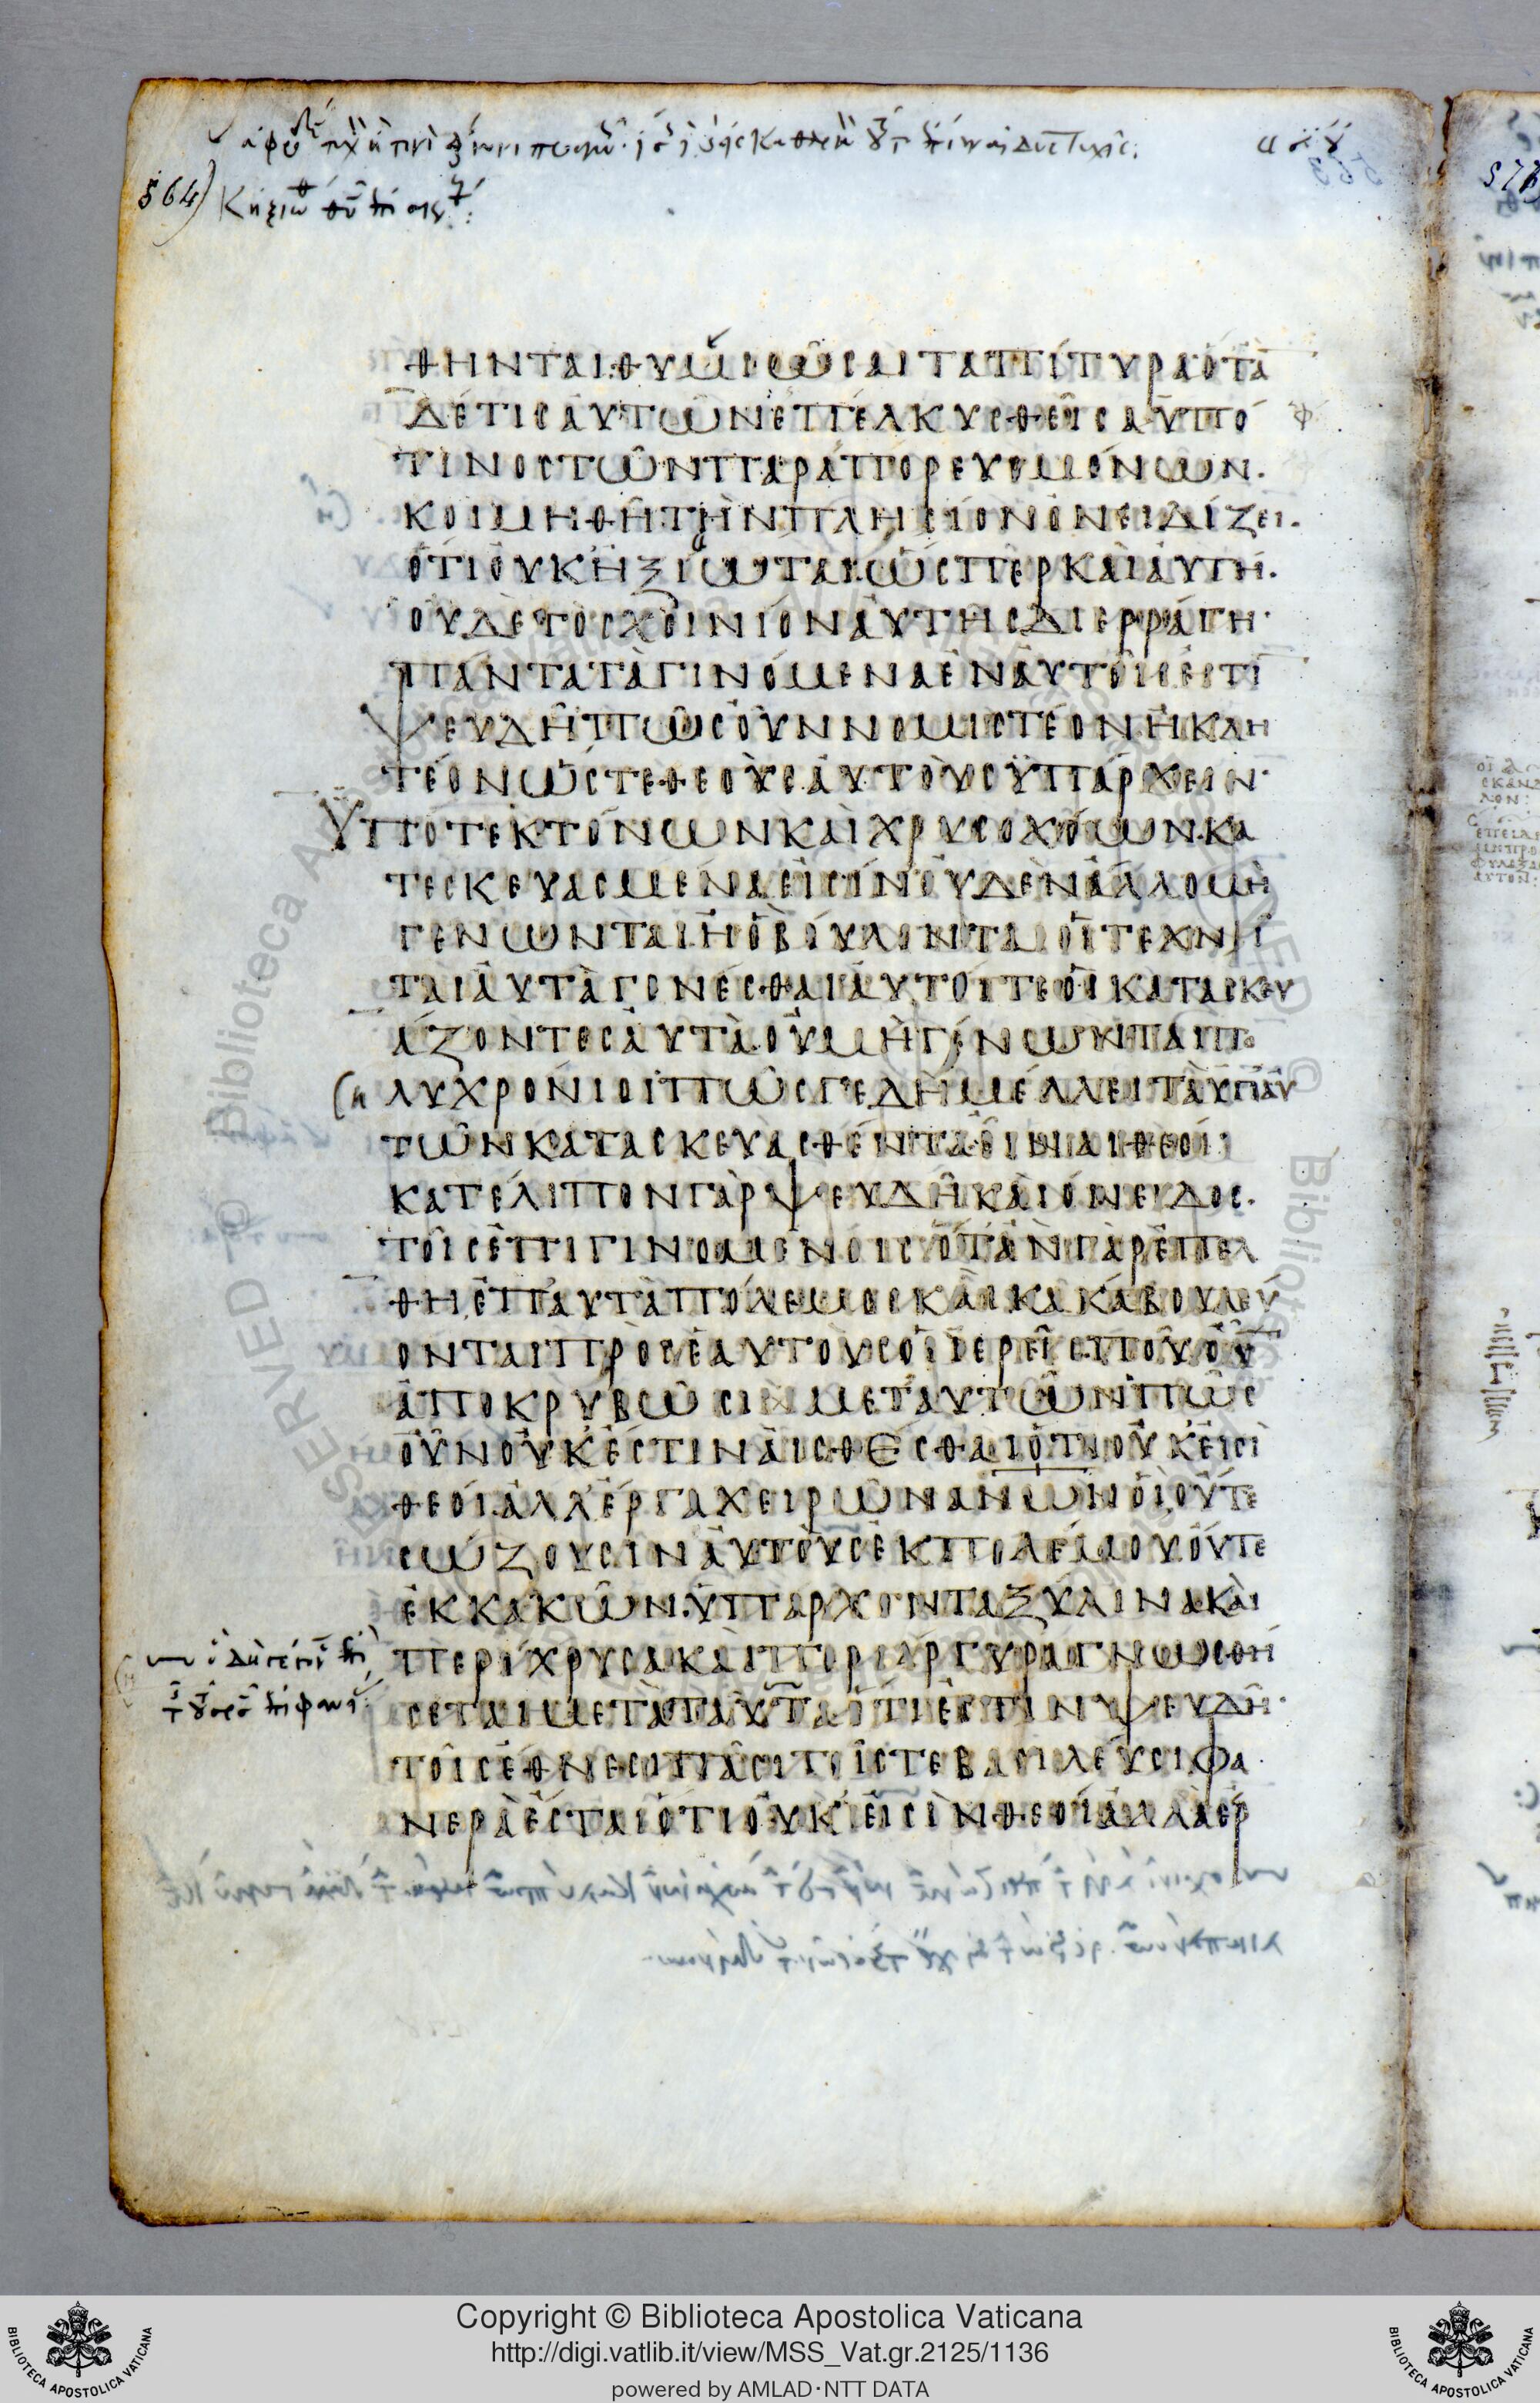 564)
ΘΗΝΤΑΙΘΥΜΙΩCΑΙΤΑΠΙΤΥΡΑΟΤΑ
ΔΕΤΙCΑΥΤΩΝΕΠΕΛΚΥCΘΕΙCΑΥΠΟ
ΤΙΝΟCΤΩΝΠΑΡΑΠΟΡΕΥΟΜΕΝΩΝ.
ΚΟΙΜΗΘΗΤΗΝΠΛΗCΙΟΝΟΝΕΙΔΙΖΕΙ.
ΟΤΙΟΥΚΗΞΙΩΤΑΙΩCΠΕΡΚΑΙΑΥΤΗ.
ΟΥΔΕΤΟCΧΟΙΝΙΟΝΑΥΤΗCΔΙΕΡΡΑΓΗ·
ΠΑΝΤΑΤΑΓΙΝΟΜΕΝΑΕΝΑΥΤΟΙCΕCΤΙ
ΨΕΥΔΗΠΩCΟΥΝΝΟΜΙCΤΕΟΝΗΚΛΗ
ΤΕΟΝΩCΤΕΘΕΟΥCΑΥΤΟΥCΥΠΑΡΧΕΙΝ·
ΥΠΟΤΕΚΤΟΝΩΝΚΑΙΧΡΥCΟΧΟΩΝΚΑ
ΤΕCΚΕΥΑCΜΕΝΑΕΙCΙΝΟΥΔΕΝΑΛΛΟΜΗ
ΓΕΝΩΝΤΑΙΗΟΒΟΥΛΟΝΤΑΙΟΙΤΕΧΝΙ
ΤΑΙΑΥΤΑΓΕΝΕCΘΑΙΑΥΤΟΙΤΕΟΙΚΑΤΑCΚΕΥ
ΑΖΟΝΤΕCΑΥΤΑΟΥΜΗΓΕΝΩΝΤΑΙΠΟ
ΛΥΧΡΟΝΙΟΙΠΩCΓΕΔΗΜΕΛΛΕΙΤΑΥΠΑΥ
ΤΩΝΚΑΤΑCΚΕΥΑCΘΕΝΤΑΕΙΝΑΙΘΕΟΙ
ΚΑΤΕΛΙΠΟΝΓΑΡΨΕΥΔΗΚΑΙΟΝΕΙΔΟC.
ΤΟΙCΕΠΙΓΙΝΟΜΕΝΟΙCΟΤΑΝΓΑΡΕΠΕΛ
ΘΗΕΠΑΥΤΑΠΟΛΕΜΟCΚΑΙΚΑΚΑΒΟΥΛΕΥ
ΟΝΤΑΙΠΡΟCΕΑΥΤΟΥCΟΙΙΕΡΕΙCΠΟΥCΥΝ
ΑΠΟΚΡΥΒΩCΙΝΜΕΤΑΥΤΩΝΠΩC
ΟΥΝΟΥΚΕCΤΙΝΑΙCΘΕCΘΑΙΟΤΙΟΥΚΕΙCΙ
ΘΕΟΙΑΛΛΕΡΓΑΧΕΙΡΩΝΑΝΩΝΟΙΟΥΤΕ
CΩΖΟΥCΙΝΑΥΤΟΥCΕΚΠΟΛΕΜΟΥΟΥΤΕ
ΕΚΚΑΚΩΝΥΠΑΡΧΟΝΤΑΞΥΛΙΝΑΚΑΙ
ΠΕΡΙΧΡΥCΑΚΑΙΠΕΡΙΑΡΓΥΡΑΓΝΩCΘΗ
CΕΤΑΙΜΕΤΑΤΑΥΤΑΟΤΙΕCΤΙΝΨΕΥΔΗ·
ΤΟΙCΕΘΝΕCΙΠΑCΙΤΟΙCΤΕΒΑCΙΛΕΥCΙΦΑ
ΝΕΡΑΕCΤΑΙΟΤΙΟΥΚΕΙCΙΝΘΕΟΙΑΛΛΑΕΡ
Copyright © Biblioteca Apostolica Vaticana
http://digi.vatlib.it/view/MSS_Vat.gr.2125/1136
powered by AMLAD·NTT DATA